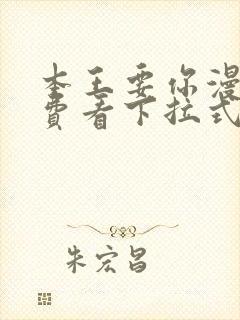 本王要你漫
费看下拉式
朱宏昌